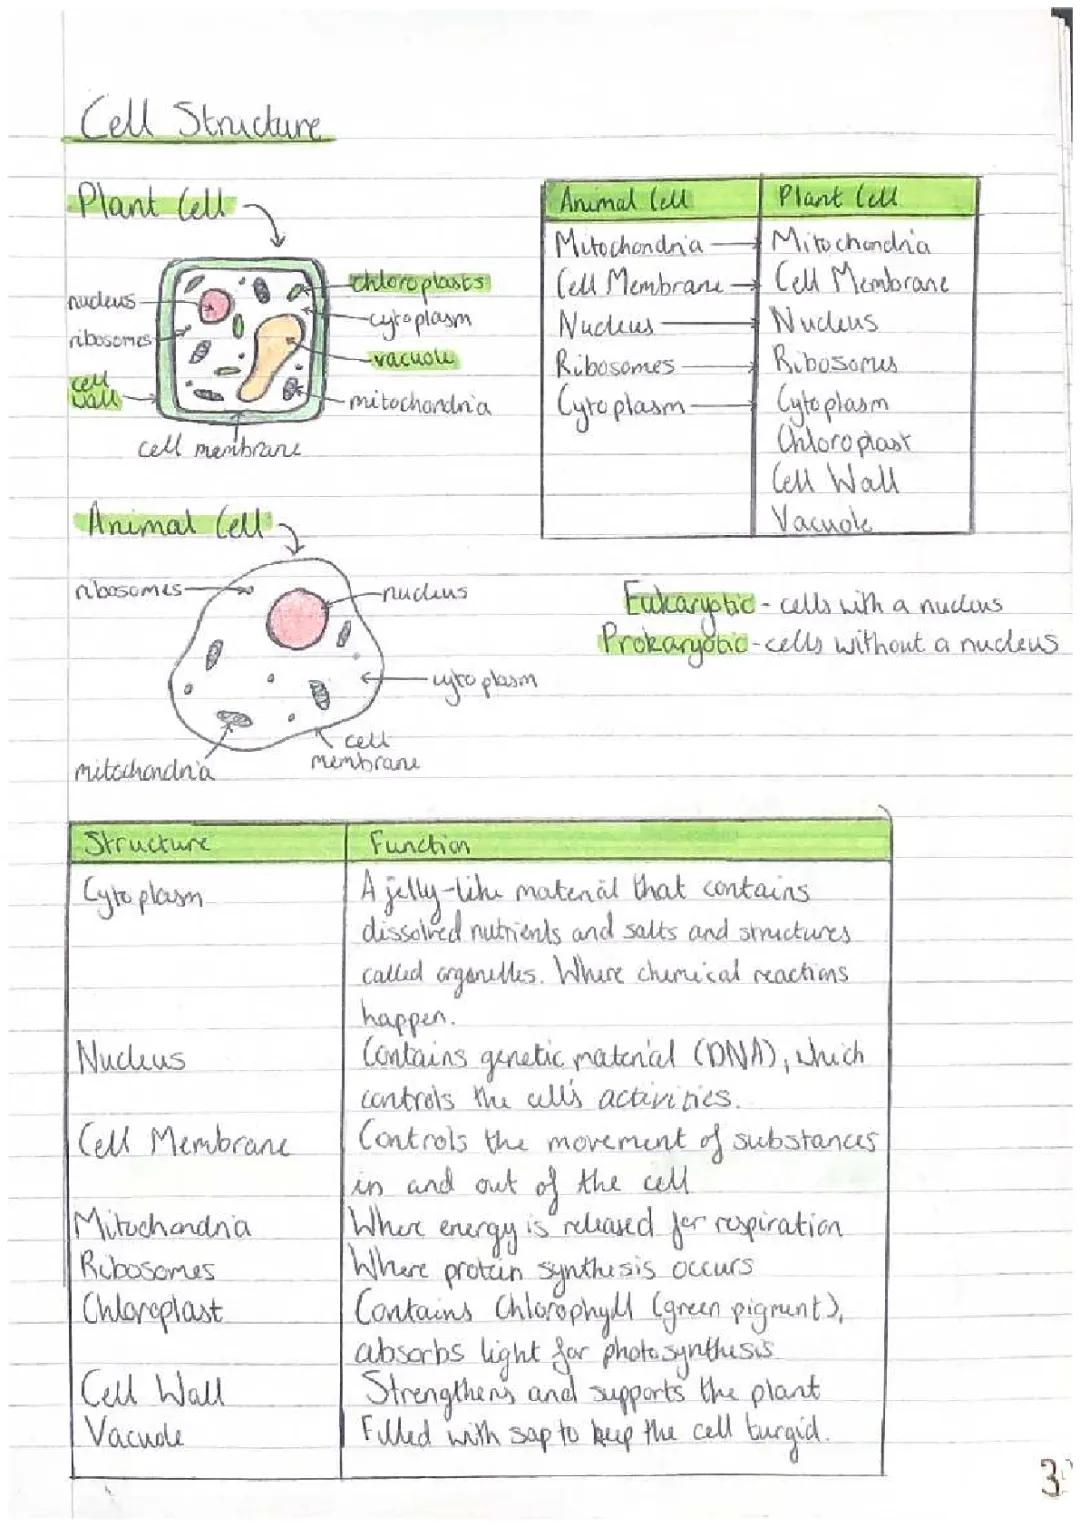 Cell Structure
Plant Cell
nucleus
ribosomes
cell
wall
cell membrane
chloroplasts
cytoplasm
vacuole
mitochondria
Animal Cell Plant Cell
Mitochondria Mitochondria
Cell Membrane Cell Membrane
Nucleus Nucleus
Ribosomes Ribosomes
Cytoplasm Cytoplasm
Chloroplast
Cell Wall
Vacuole
Animal Cell
ribosomes
nucleus
cytoplasm
cell
membrane
mitochondria
Eukaryotic - cells with a nucleus
Prokaryotic - cells without a nucleus
Structure Function
Cytoplasm A jelly-like material that contains
dissolved nutrients and salts and structures
called organelles. Where chemical reactions
happen.
Nucleus Contains genetic material (DNA), which
controls the cell's activities.
Cell Membrane Controls the movement of substances
in and out of the cell
Mitochondria Where energy is released for respiration
Ribosomes Where protein synthesis occurs
Chloroplast Contains Chlorophyll (green pigment),
absorbs light for photosynthesis
Cell Wall Strengthens and supports the plant
Vacuole Filled with sap to keep the cell turgid.
3